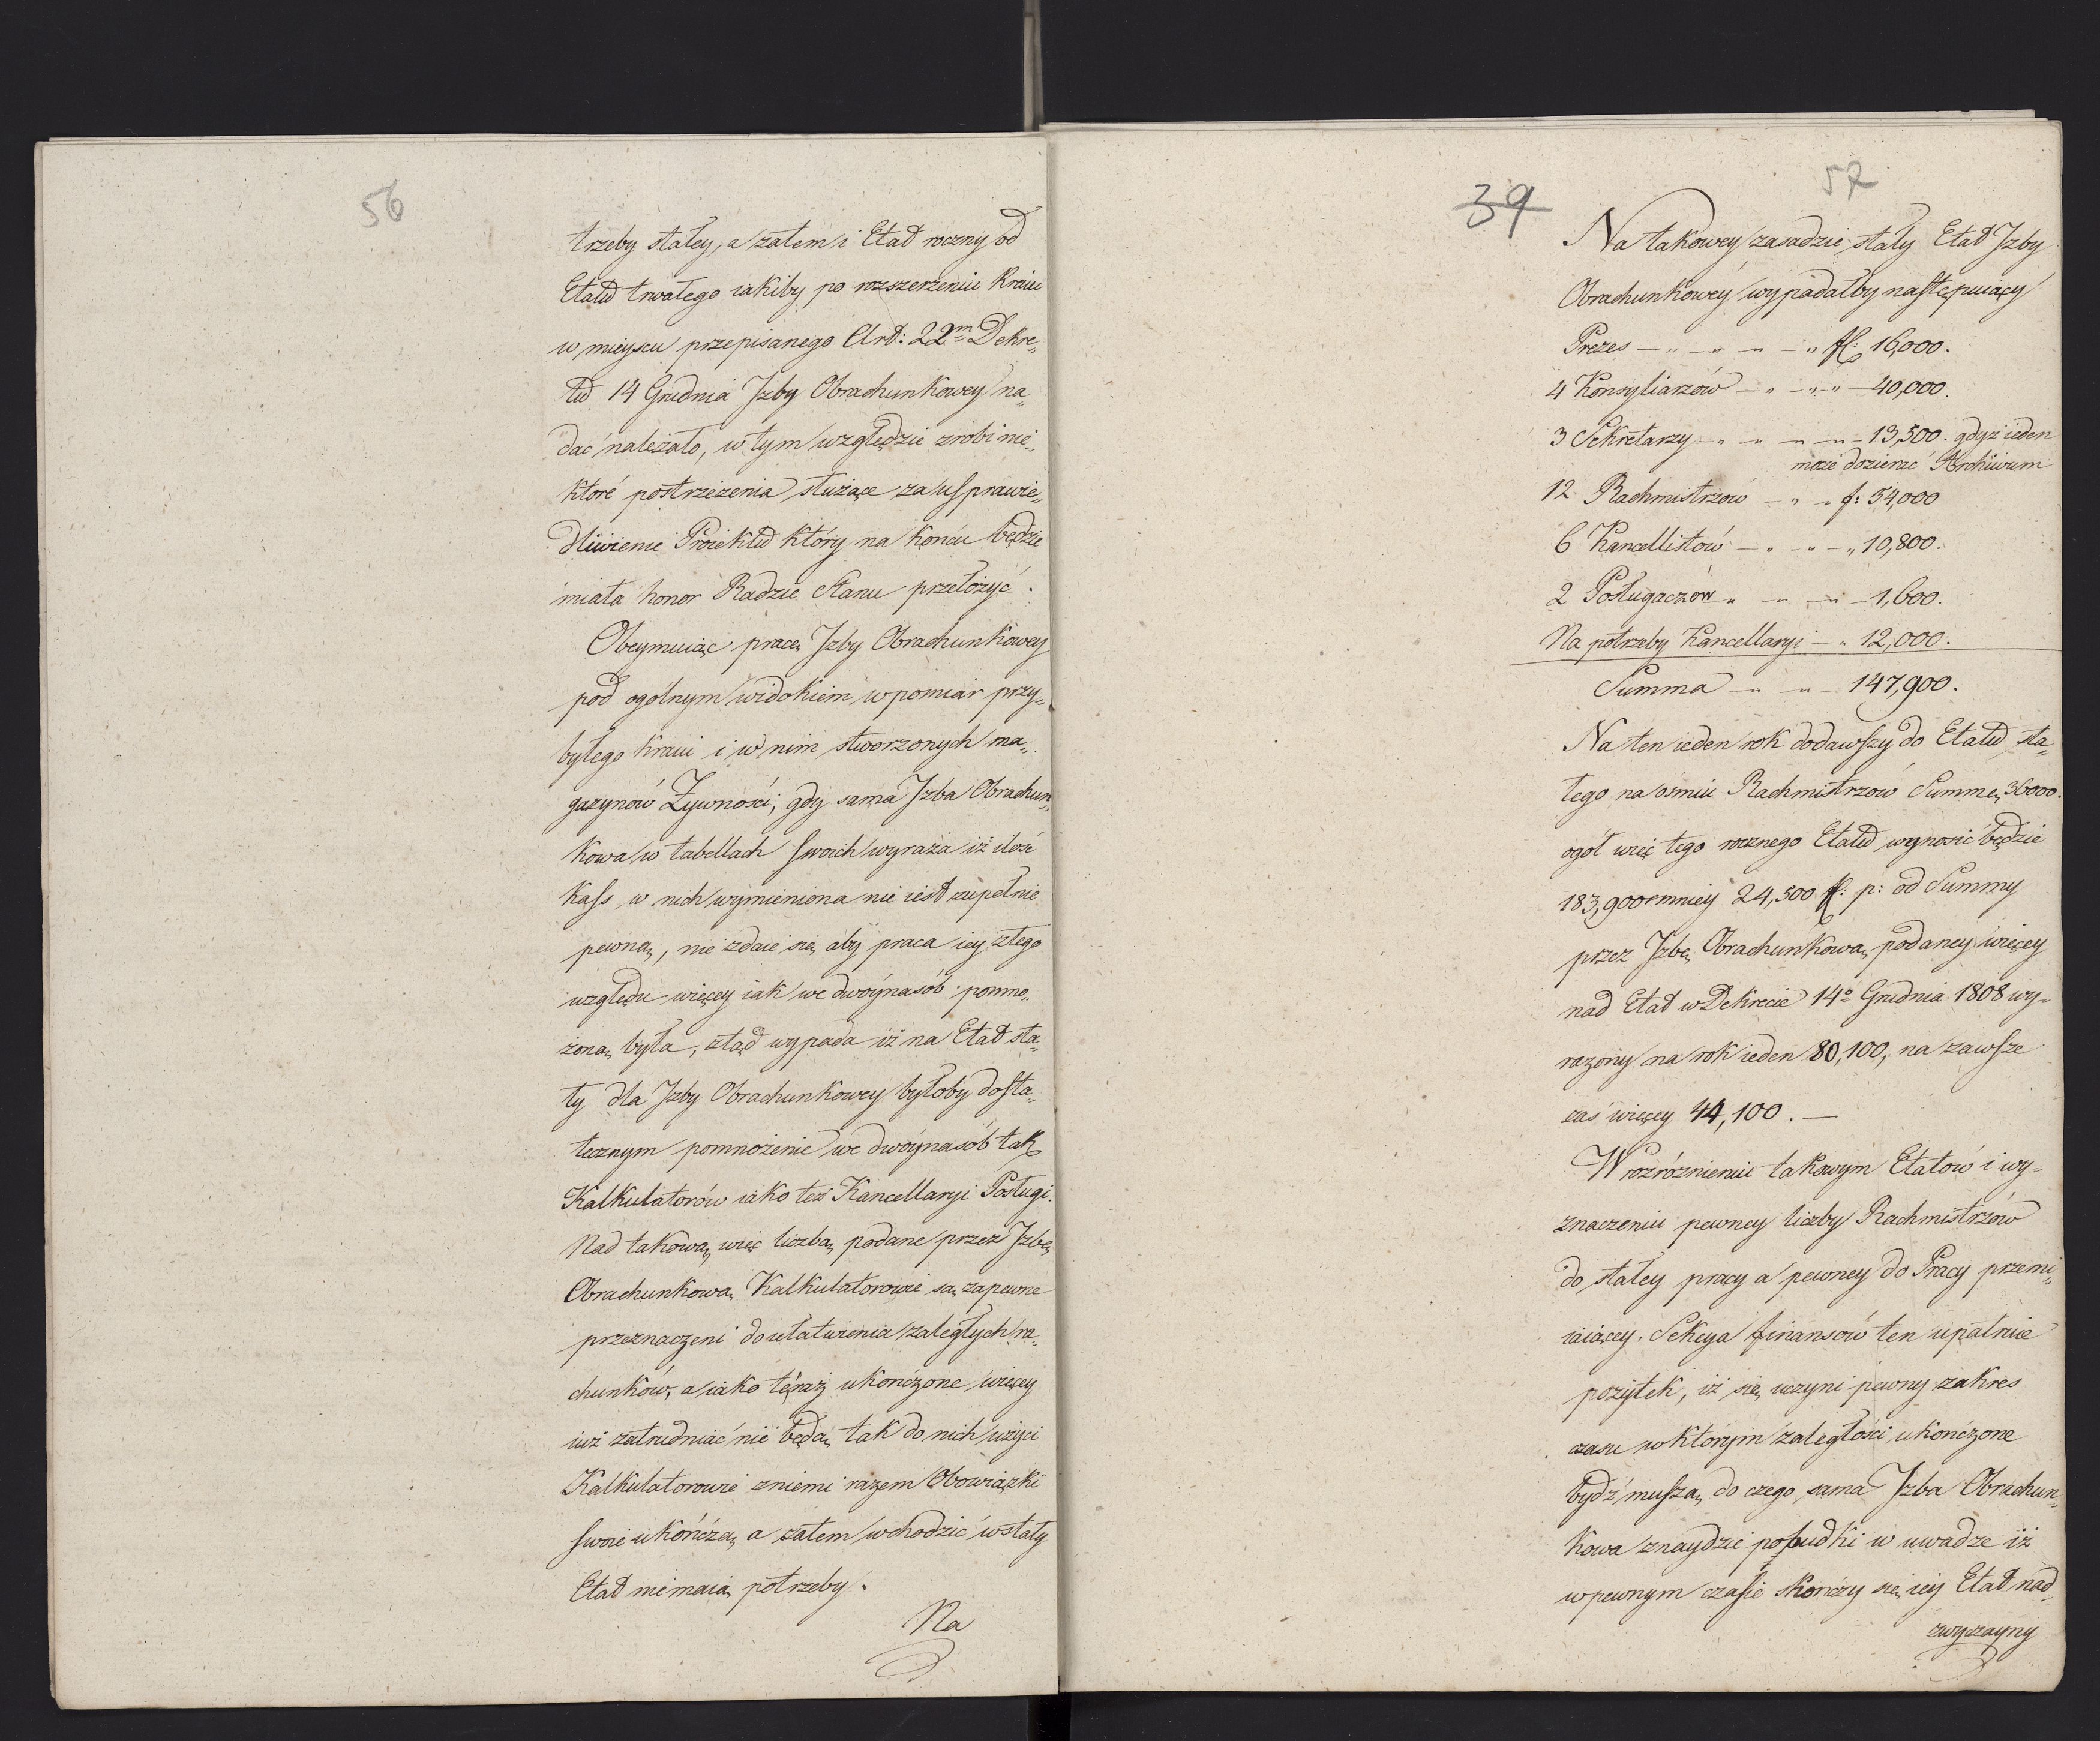 56
trzeby stałey, a zatem i Etat roczny od
Etatu trwałego iakiby po rozszerzeniu Kraiu
w mieyscu przepisanego Art: 22m Dekre„
tu 14 Grudnia Izby Obrachunkowey na„
dać należało, w tym względzie zrobi nie„
które postrzeżenia służące za usprawie„
dliwienie Proiektu który na końcu będzie
miała honor Radzie Stanu przełożyć.
Obeymuiąc pracę Izby Obrachunkowey
pod ogólnym widokiem w pomiar przy„
byłego kraiu i w nim stworzonych ma„
gazynów Żywności, gdy sama Izba Obrachun„
kowa w tabellach swoich wyraża iż ilość
Kass w nich wymieniona nie iest zupełnie
pewną, nie zdaie się aby praca iey z tego
względu więcey iak we dwóynasób pomno„
żoną była, ztąd wypada iż na Etat sta„
ły dla Izby Obrachunkowey byłoby dosta„
tecznym pomnożenie we dwóynasób tak
Kalkulatorów iako też Kancellaryi Posługi.
Nad takową więc liczbą podane przez Izbę
Obrachunkową Kalkulatorowie są zapewne
przeznaczeni do ułatwienia zaległych ra„
chunków, a iako te raz ukończone więcey
iuż zatrudniać nie będą, tak do nich użyci
Kalkulatorowie z niemi razem Obowiązki
swoie ukończą, a zatem wchodzić w stały
Etat nie maią potrzeby.
Na
39
57
Na takowey zasadzie stały Etat Izby
Obrachunkowey wypadałby następuiący
Prezes — „ — „ — „ fl: 16,000.
4 Konsyliarzów — „ — „ — 40,000.
3 Sekretarzy — „ — „ — 13,500. gdyż ieden
może dozierać Archiwum
12 Rachmistrzów — „ — „ f: 54,000
6 Kancellistów — „ — „ — „ 10,800.
2 Posługaczów „ — „ — „ — 1,600.
Na potrzeby Kancellaryi — „ 12,000.
Summa — „ — „ — 147,900.
Na ten ieden rok dodawszy do Etatu sta„
łego na osmiu Rachmistrzów Summę 36000.
ogół więc tego rocznego Etatu wynosić będzie
183,900 mniey 24,500 fl: p: od Summy
przez Izbę Obrachunkową podaney więcey
nad Etat w Dekrecie 14o Grudnia 1808 wy„
rażony na rok ieden 80,100, na zawsze
zaś więcey 44,100. —
W rozróżnieniu takowym Etatów i wy„
znaczeniu pewney liczby Rachmistrzów
do stałey pracy a pewney do Pracy przemi„
iaiącey. Sekcya finansów ten upatruie
pożytek, iż się uczyni pewny zakres
czasu w którym zaległości ukończone
bydź muszą, do czego sama Izba Obrachun„
kowa znaydzie pobudki w uwadze iż
w pewnym czasie skończy się iey Etat nad„
zwyczayny